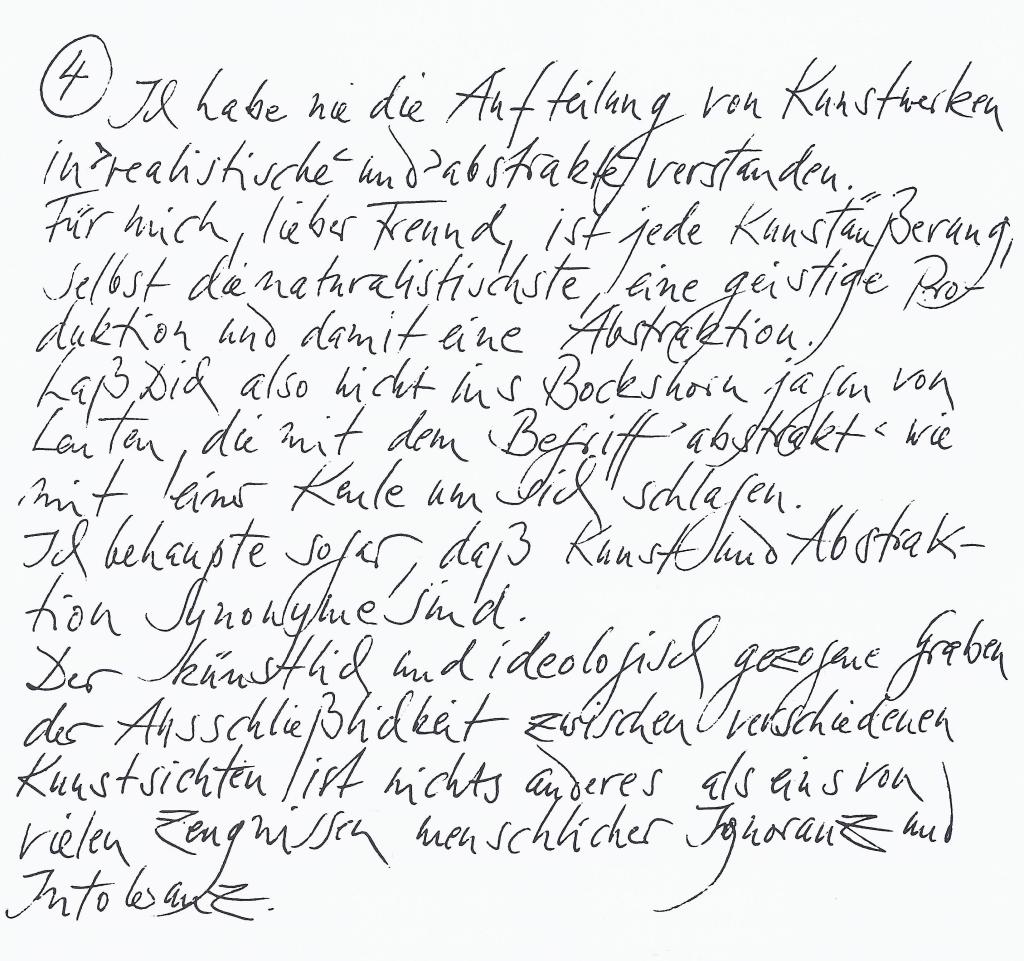 ④ Ich habe nie die Aufteilung von Kunstwerken
in ›realistische‹ und ›abstrakte‹ verstanden.
Für mich, lieber Freund, ist jede Kunstäußerung,
selbst die naturalistischste, eine geistige Pro-
duktion und damit eine Abstraktion.
Laß Dich also nicht ins Bockshorn jagen von
Leuten, die mit dem Begriff ›abstrakt‹ wie
mit einer Keule um sich schlagen.
Ich behaupte sogar, daß Kunst und Abstrak-
tion Synonyme sind.
Der künstlich und ideologisch gezogene Graben
der Ausschließlichkeit zwischen verschiedenen
Kunstsichten ist nichts anderes als eins von
vielen Zeugnissen menschlicher Ignoranz und
Intoleranz.